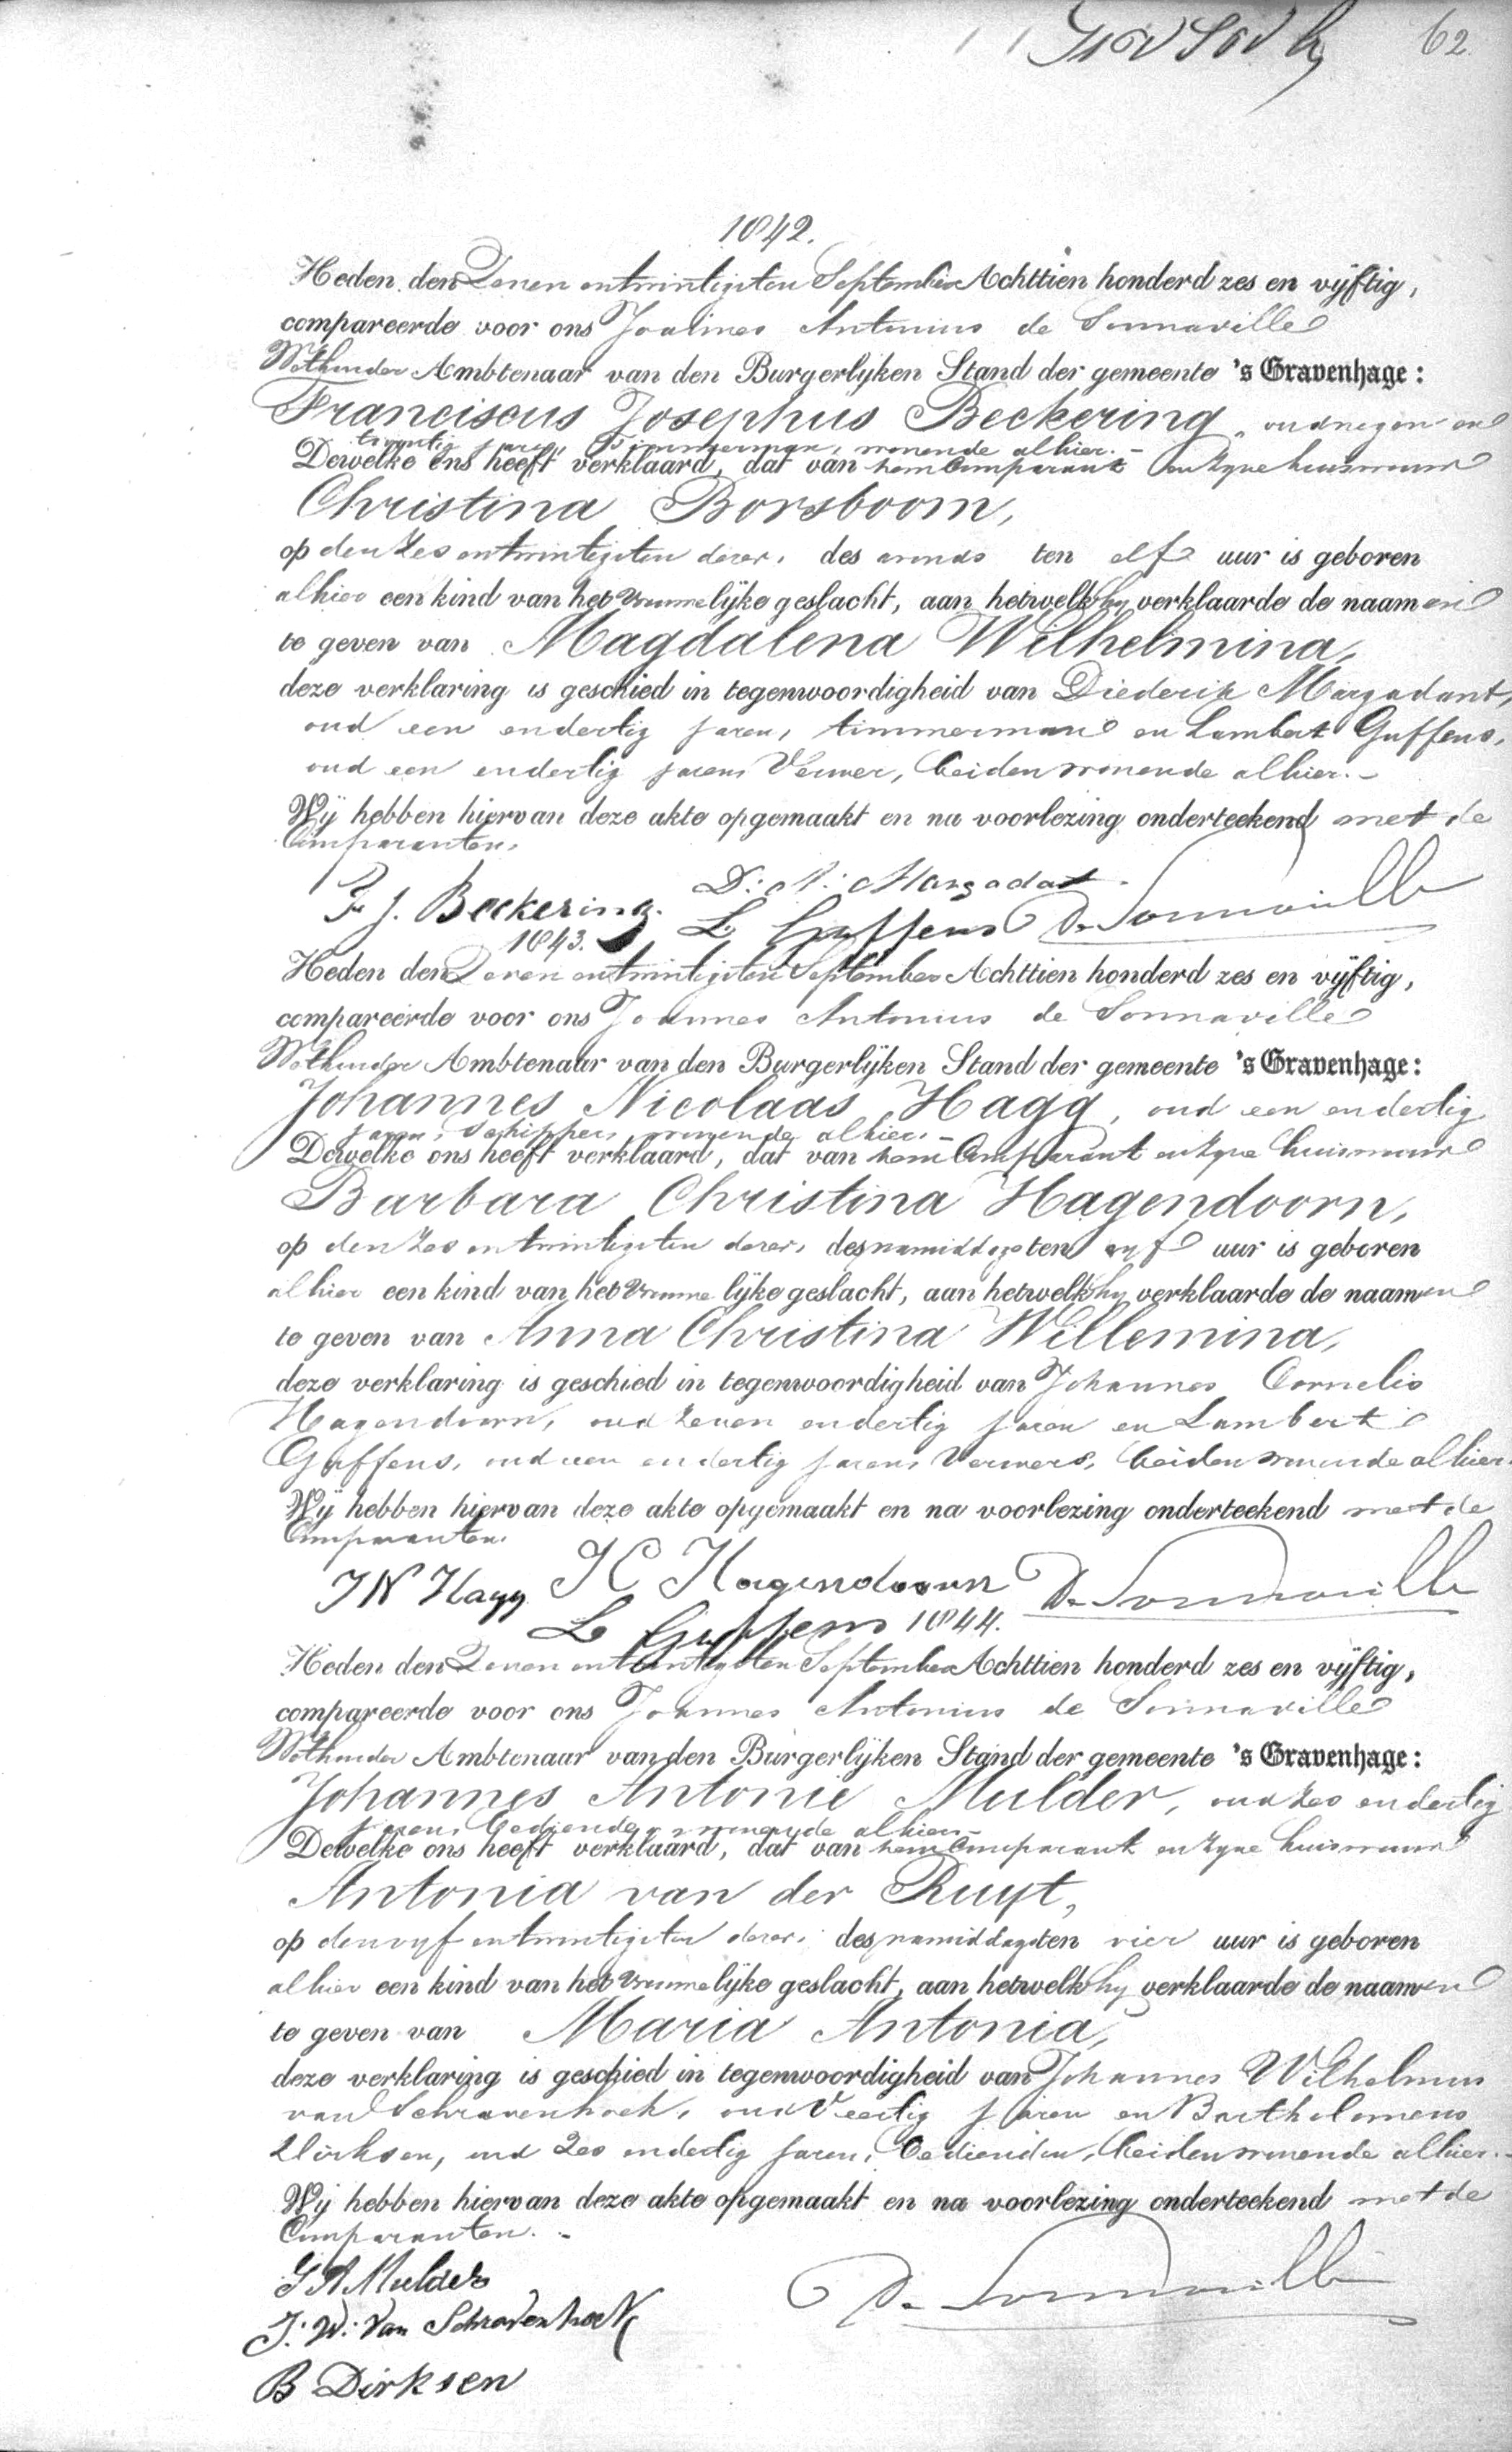 62.
1842.
Heden den Zeven entwintigsten September Achttien honderd zes en vijftig,
compareerde voor ons Joannes Antonius de Sonnaville
Wethouder Ambtenaar van den Burgerlijken Stand der gemeente 's Gravenhage:
Franciscus Josephus Beckering, oud negen en
twintig jaren, timmerman, wonende alhier.-
Dewelke ons heeft verklaard, dat van hem Comparant en zyne huisvrouw
Christina Borsboom,
op den zes entwintigsten dezer, des avonds ten elf uur is geboren
alhier een kind van het vrouwelijke geslacht, aan hetwelk hy verklaarde de naamen
te geven van Magdalena Wilhelmina,
deze verklaring is geschied in tegenwoordigheid van Diederik Margadant,
oud een endertig jaren, timmerman en Lambert Guffens,
oud een endertig jaren, Verwer, beiden wonende alhier.-
Wij hebben hiervan deze akte opgemaakt en na voorlezing onderteekend met de
Comparanten.
F. J. Beckering. D: N: Margadat
L Guffens De Sonnaville
1843.
Heden den Zeven entwintigsten September Achttien honderd zes en vijftig,
compareerde voor ons Joannes Antonius de Sonnaville
Wethouder Ambtenaar van den Burgerlijken Stand der gemeente 's Gravenhage:
Johannes Nicolaas Hagg, oud een endertig
jaren, Schipper, wonende alhier.-
Dewelke ons heeft verklaard, dat van hem Comparant en zyne huisvrouw
Barbara Christina Hagendoorn,
op den zes entwintigsten dezer, des namiddags ten uur is geboren
alhier een kind van het vrouwelijke geslacht, aan hetwelk hy verklaarde de naamen
te geven van Anna Christina Willemina,
deze verklaring is geschied in tegenwoordigheid van Johannes Cornelis
Hagendoorn, oud zeven endertig jaren en Lambert
Guffens, oud een endertig jaren, Verwers, beiden wonende alhier.
Wij hebben hiervan deze akte opgemaakt en na voorlezing onderteekend met de
Comparanten.
J N Hagg J C Hagendoorn De Sonnaville
L Guffens 1844.
Heden den Zeven entwintigsten September Achttien honderd zes en vijftig,
compareerde voor ons Joannes Antonius de Sonnaville
Wethouder Ambtenaar van den Burgerlijken Stand der gemeente 's Gravenhage:
Johannes Antonie Mulder, oud zes endertig
jaren, bediende, wonende alhier.-
Dewelke ons heeft verklaard, dat van hem Comparant en zyne huisvrouw
Antonia van der Ruyt,
op den vyf entwintigsten dezer, des namiddags ten vier uur is geboren
alhier een kind van het vrouwelijke geslacht, aan hetwelk hy verklaarde de naamen
te geven van Maria Antonia,
deze verklaring is geschied in tegenwoordigheid van Johannes Wilhelmus
van Schravenhoek, oud Veertig jaren en Bartholomeus
Dirksen, oud zes endertig jaren, bedienden, beiden wonende alhier.-
Wij hebben hiervan deze akte opgemaakt en na voorlezing onderteekend met de
Comparanten.-
J A Mulder
J: W: Van Schravenhoek De Sonnaville
B Dirksen